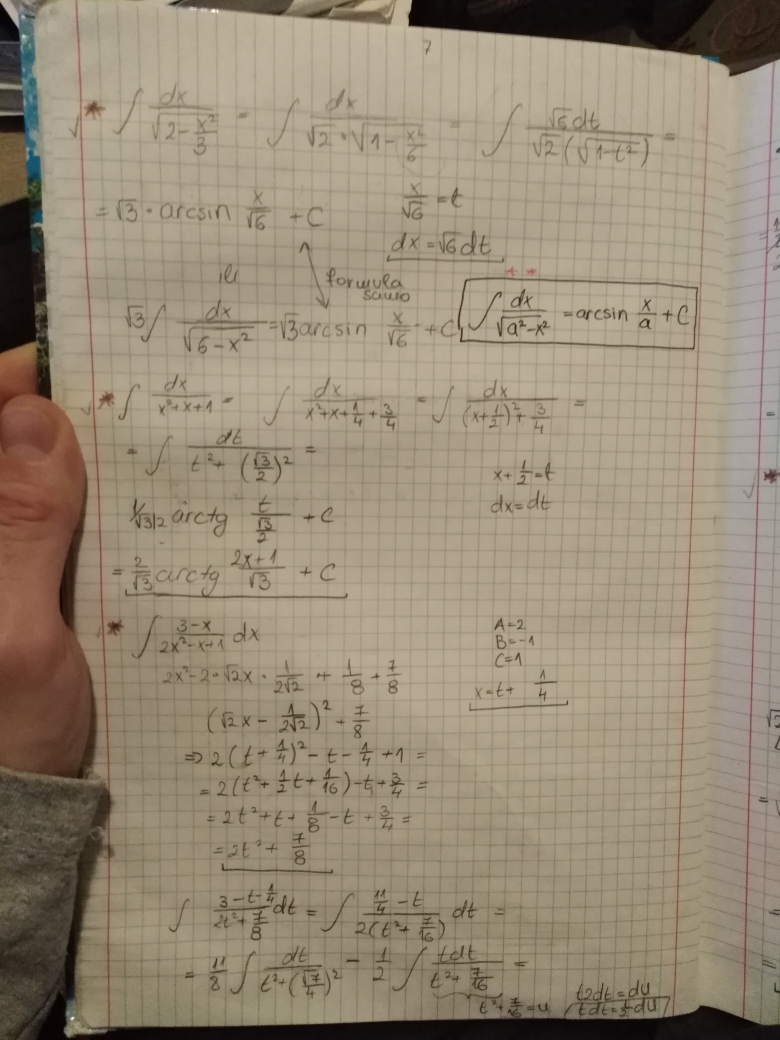 7
* ∫ dx/√(2-x²/3) = ∫ dx/(√2·√(1-x²/6)) = ∫ √6dt/(√2(√(1-t²))) =
x/√6 = t
= √3·arcsin x/√6 + C
dx = √6dt
ili
formula samo
* *
√3∫ dx/√(6-x²) = √3 arcsin x/√6 + C
∫ dx/√(a²-x²) = arcsin x/a + C
* ∫ dx/(x²+x+1) = ∫ dx/(x²+x+1/4+3/4) = ∫ dx/((x+1/2)²+3/4) =
= ∫ dt/(t²+(√3/2)²) =
x+1/2=t
dx=dt
1/√3/2 arctg t/(√3/2) + C
= 2/√3 arctg (2x+1)/√3 + C
* ∫ (3-x)/(2x²-x+1) dx
A=2
B=-1
C=1
x=t+1/4
2x²-2·√2x·1/(2√2) + 1/8 + 7/8
(√2x - 1/(2√2))² + 7/8
⇒ 2(t+1/4)² - t - 1/4 + 1 =
= 2(t²+1/2t+1/16) - t + 3/4 =
= 2t² + t + 1/8 - t + 3/4 =
= 2t² + 7/8
∫ (3-t-1/4)/(2t²+7/8) dt = ∫ (11/4-t)/(2(t²+7/16)) dt =
= 11/8 ∫ dt/(t²+(√7/4)²) - 1/2 ∫ tdt/(t²+7/16) =
t²+7/16=u
t2dt=du
tdt=1/2du